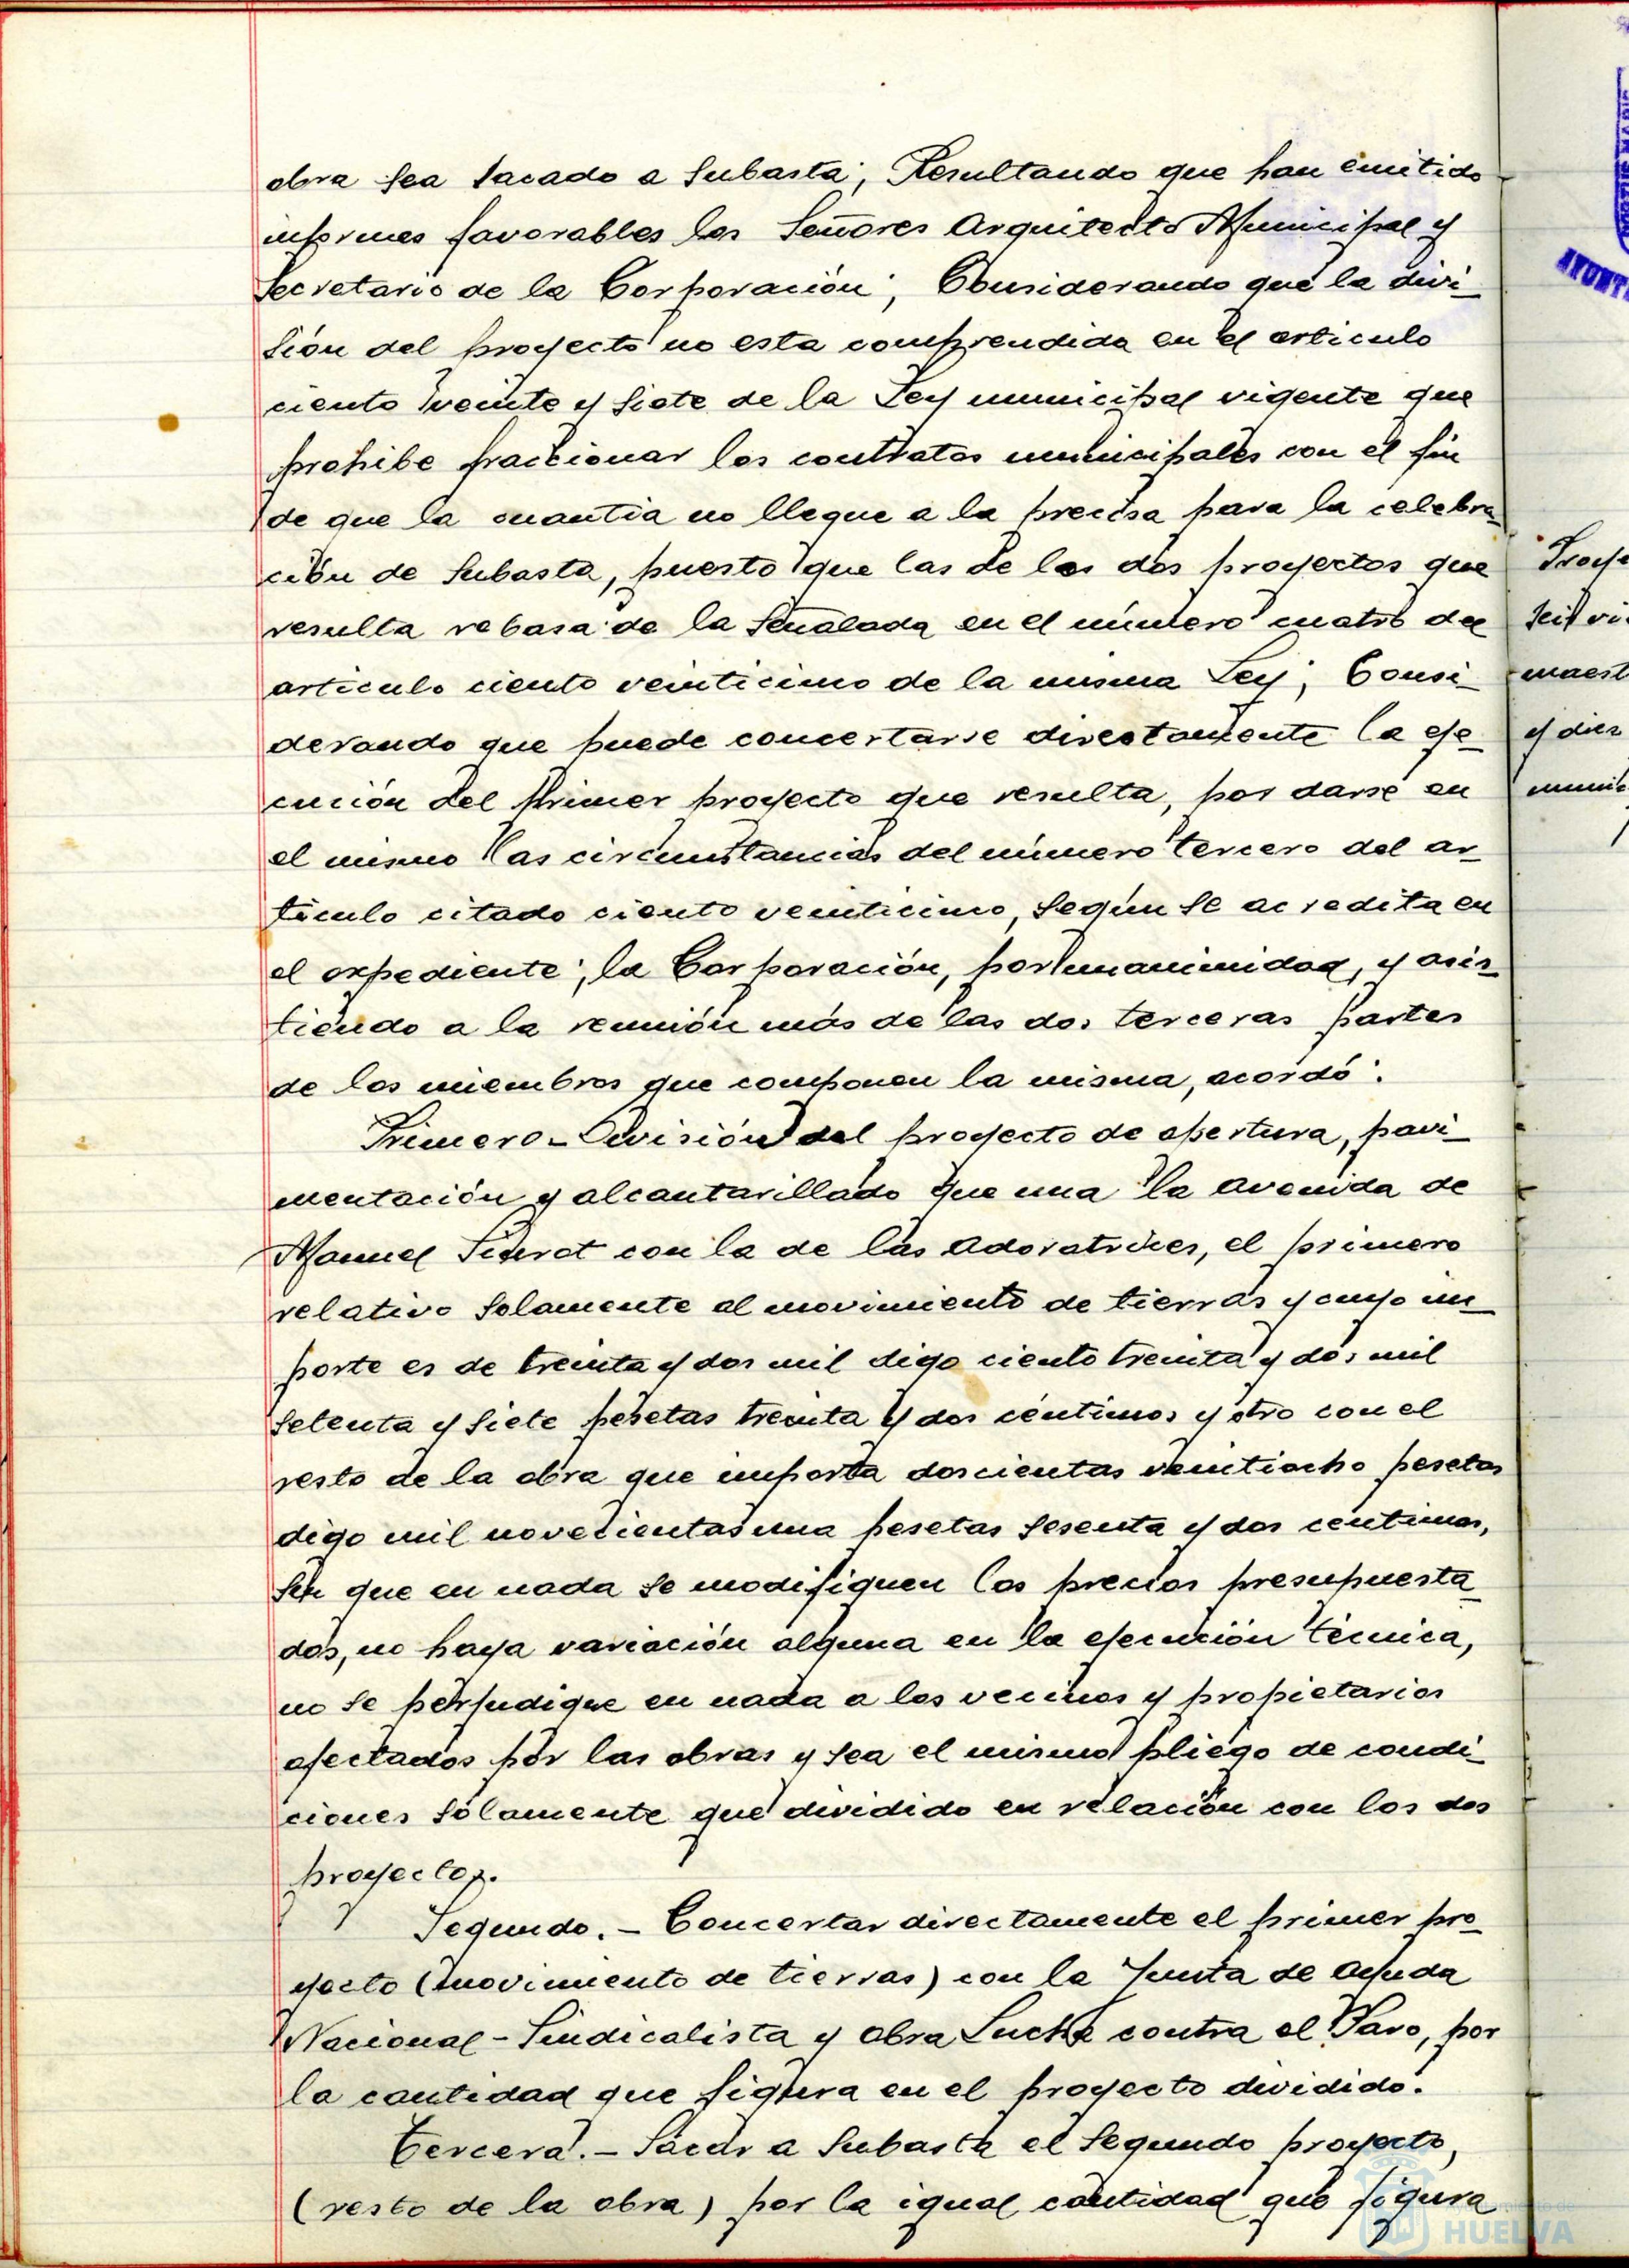 obra sea sacado a subasta; Resultando que han emitido
informes favorables los Señores Arquitecto Municipal y
Secretario de la Corporación; Considerando que la divi-
sión del proyecto no esta comprendida en el articulo
ciento veinte y siete de la Ley municipal vigente que
prohibe fraccionar los contratos municipales con el fin
de que la cuantia no llegue a la precisa para la celebra-
ción de subasta, puesto que las de los dos proyectos que
resulta rebasa de la señalada en el número cuatro del
articulo ciento veinticinco de la misma Ley; Consi-
derando que puede concertarse directamente la eje-
cución del primer proyecto que resulta, por darse en
el mismo las circunstancias del número tercero del ar-
tículo citado ciento veinticinco, según se acredita en
el expediente; la Corporación, por unanimidad, y asis-
tiendo a la reunión más de las dos terceras partes
de los miembros que componen la misma, acordó:
Primero - División del proyecto de apertura, pavi-
mentación y alcantarillado que una la avenida de
Manuel Siurot con la de las Adoratrices, el primero
relativo solamente al movimiento de tierras y cuyo im-
porte es de treinta y dos mil digo ciento treinta y dos mil
setenta y siete pesetas treinta y dos céntimos y otro con el
resto de la obra que importa doscientas veintiocho pesetas
digo mil novecientas una pesetas sesenta y dos centimos,
sin que en nada se modifiquen los precios presupuesta-
dos, no haya variación alguna en la ejecución técnica,
no se perjudique en nada a los vecinos y propietarios
afectados por las obras y sea el mismo pliego de condi-
ciones sólamente que dividido en relación con los dos
proyectos.
Segundo. - Concertar directamente el primer pro-
yecto (movimiento de tierras) con la Junta de Ayuda
Nacional-Sindicalista y Obra Lucha contra el Paro, por
la cantidad que figura en el proyecto dividido.
Tercera. - Sacar a subasta el segundo proyecto,
(resto de la obra) por la igual cantidad que figura
HUELVA